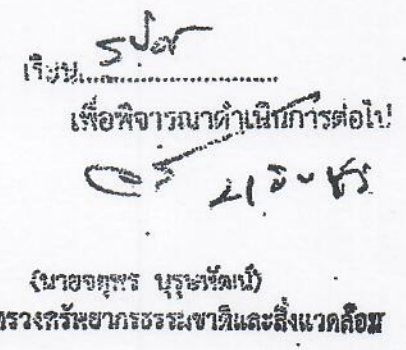 เรียน....................
เพื่อพิจารณาดำเนินการต่อไป
21
(นายจตุพร บุรุษพัฒน์)
ทรวงทรัพยากรธรรมชาติและสิ่งแวดล้อม